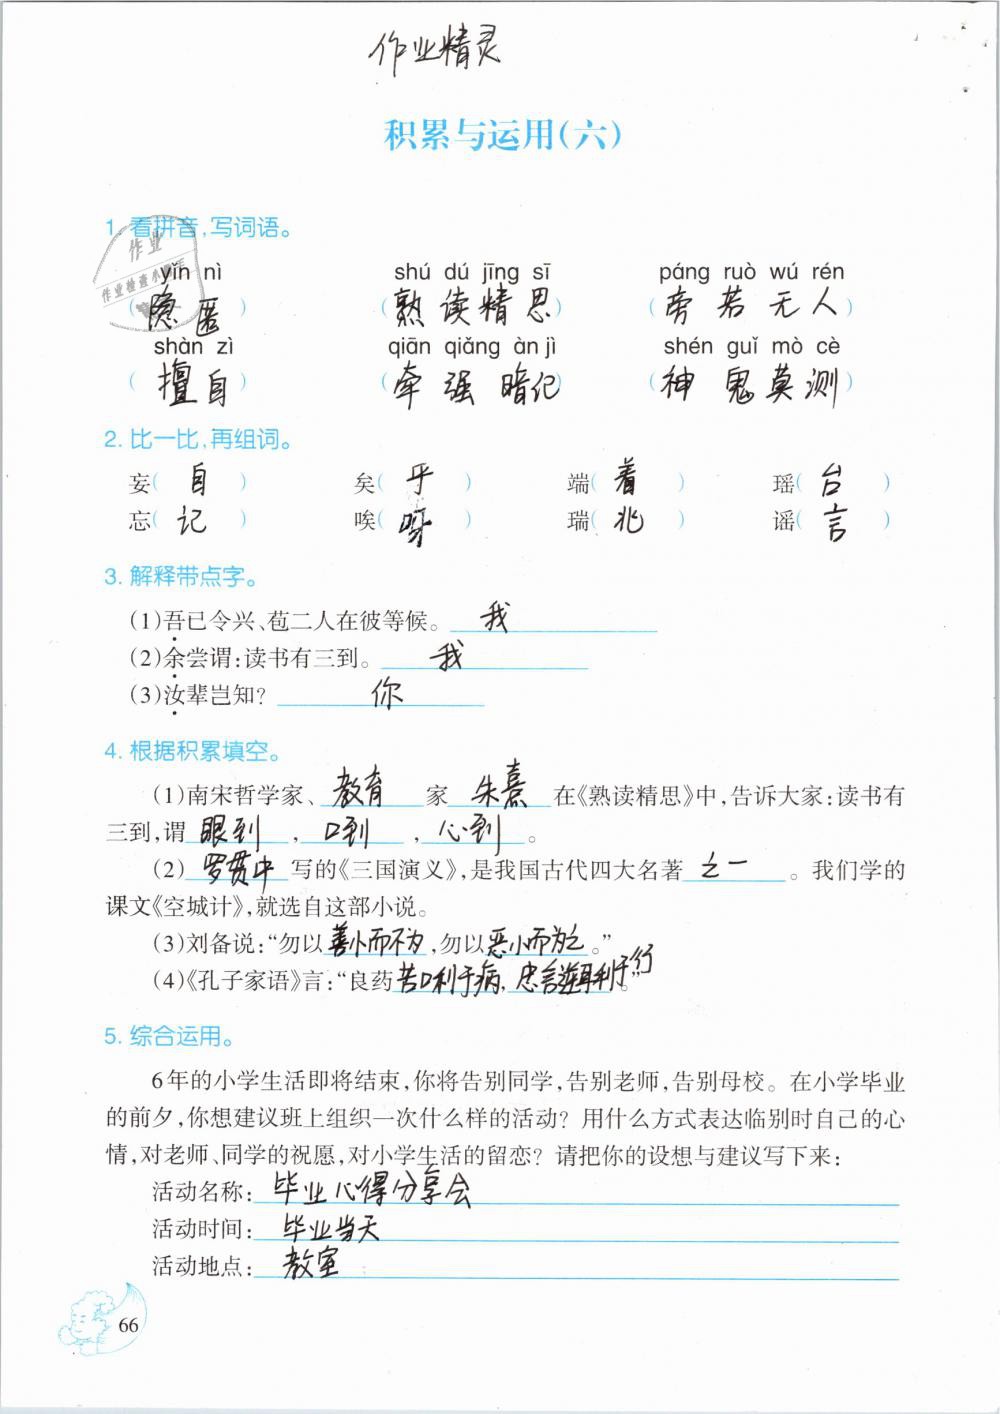 作业精灵
积累与运用(六)
1. 看拼音,写词语。
作业
作业检查小
yǐn nì shú dú jīng sī páng ruò wú rén
(隐匿) (熟读精思) (旁若无人)
shàn zì qiān qiǎng àn jì shén guǐ mò cè
(擅自) (牵强暗记) (神鬼莫测)
2. 比一比,再组词。
妄(自) 矣(乎) 端(着) 瑶(台)
忘(记) 唉(呀) 瑞(兆) 谣(言)
3. 解释带点字。
(1)吾已令兴、苞二人在彼等候。 我
(2)余尝谓:读书有三到。 我
(3)汝辈岂知? 你
4. 根据积累填空。
(1)南宋哲学家、教育家朱熹在《熟读精思》中,告诉大家:读书有
三到,谓眼到,口到,心到。
(2)罗贯中写的《三国演义》,是我国古代四大名著之一。我们学的
课文《空城计》,就选自这部小说。
(3)刘备说:“勿以善小而不为,勿以恶小而为之。”
(4)《孔子家语》言:“良药苦口利于病,忠言逆耳利于行。”
5. 综合运用。
6年的小学生活即将结束,你将告别同学,告别老师,告别母校。在小学毕业
的前夕,你想建议班上组织一次什么样的活动?用什么方式表达临别时自己的心
情,对老师、同学的祝愿,对小学生活的留恋?请把你的设想与建议写下来:
活动名称:毕业心得分享会
活动时间:毕业当天
活动地点:教室
66